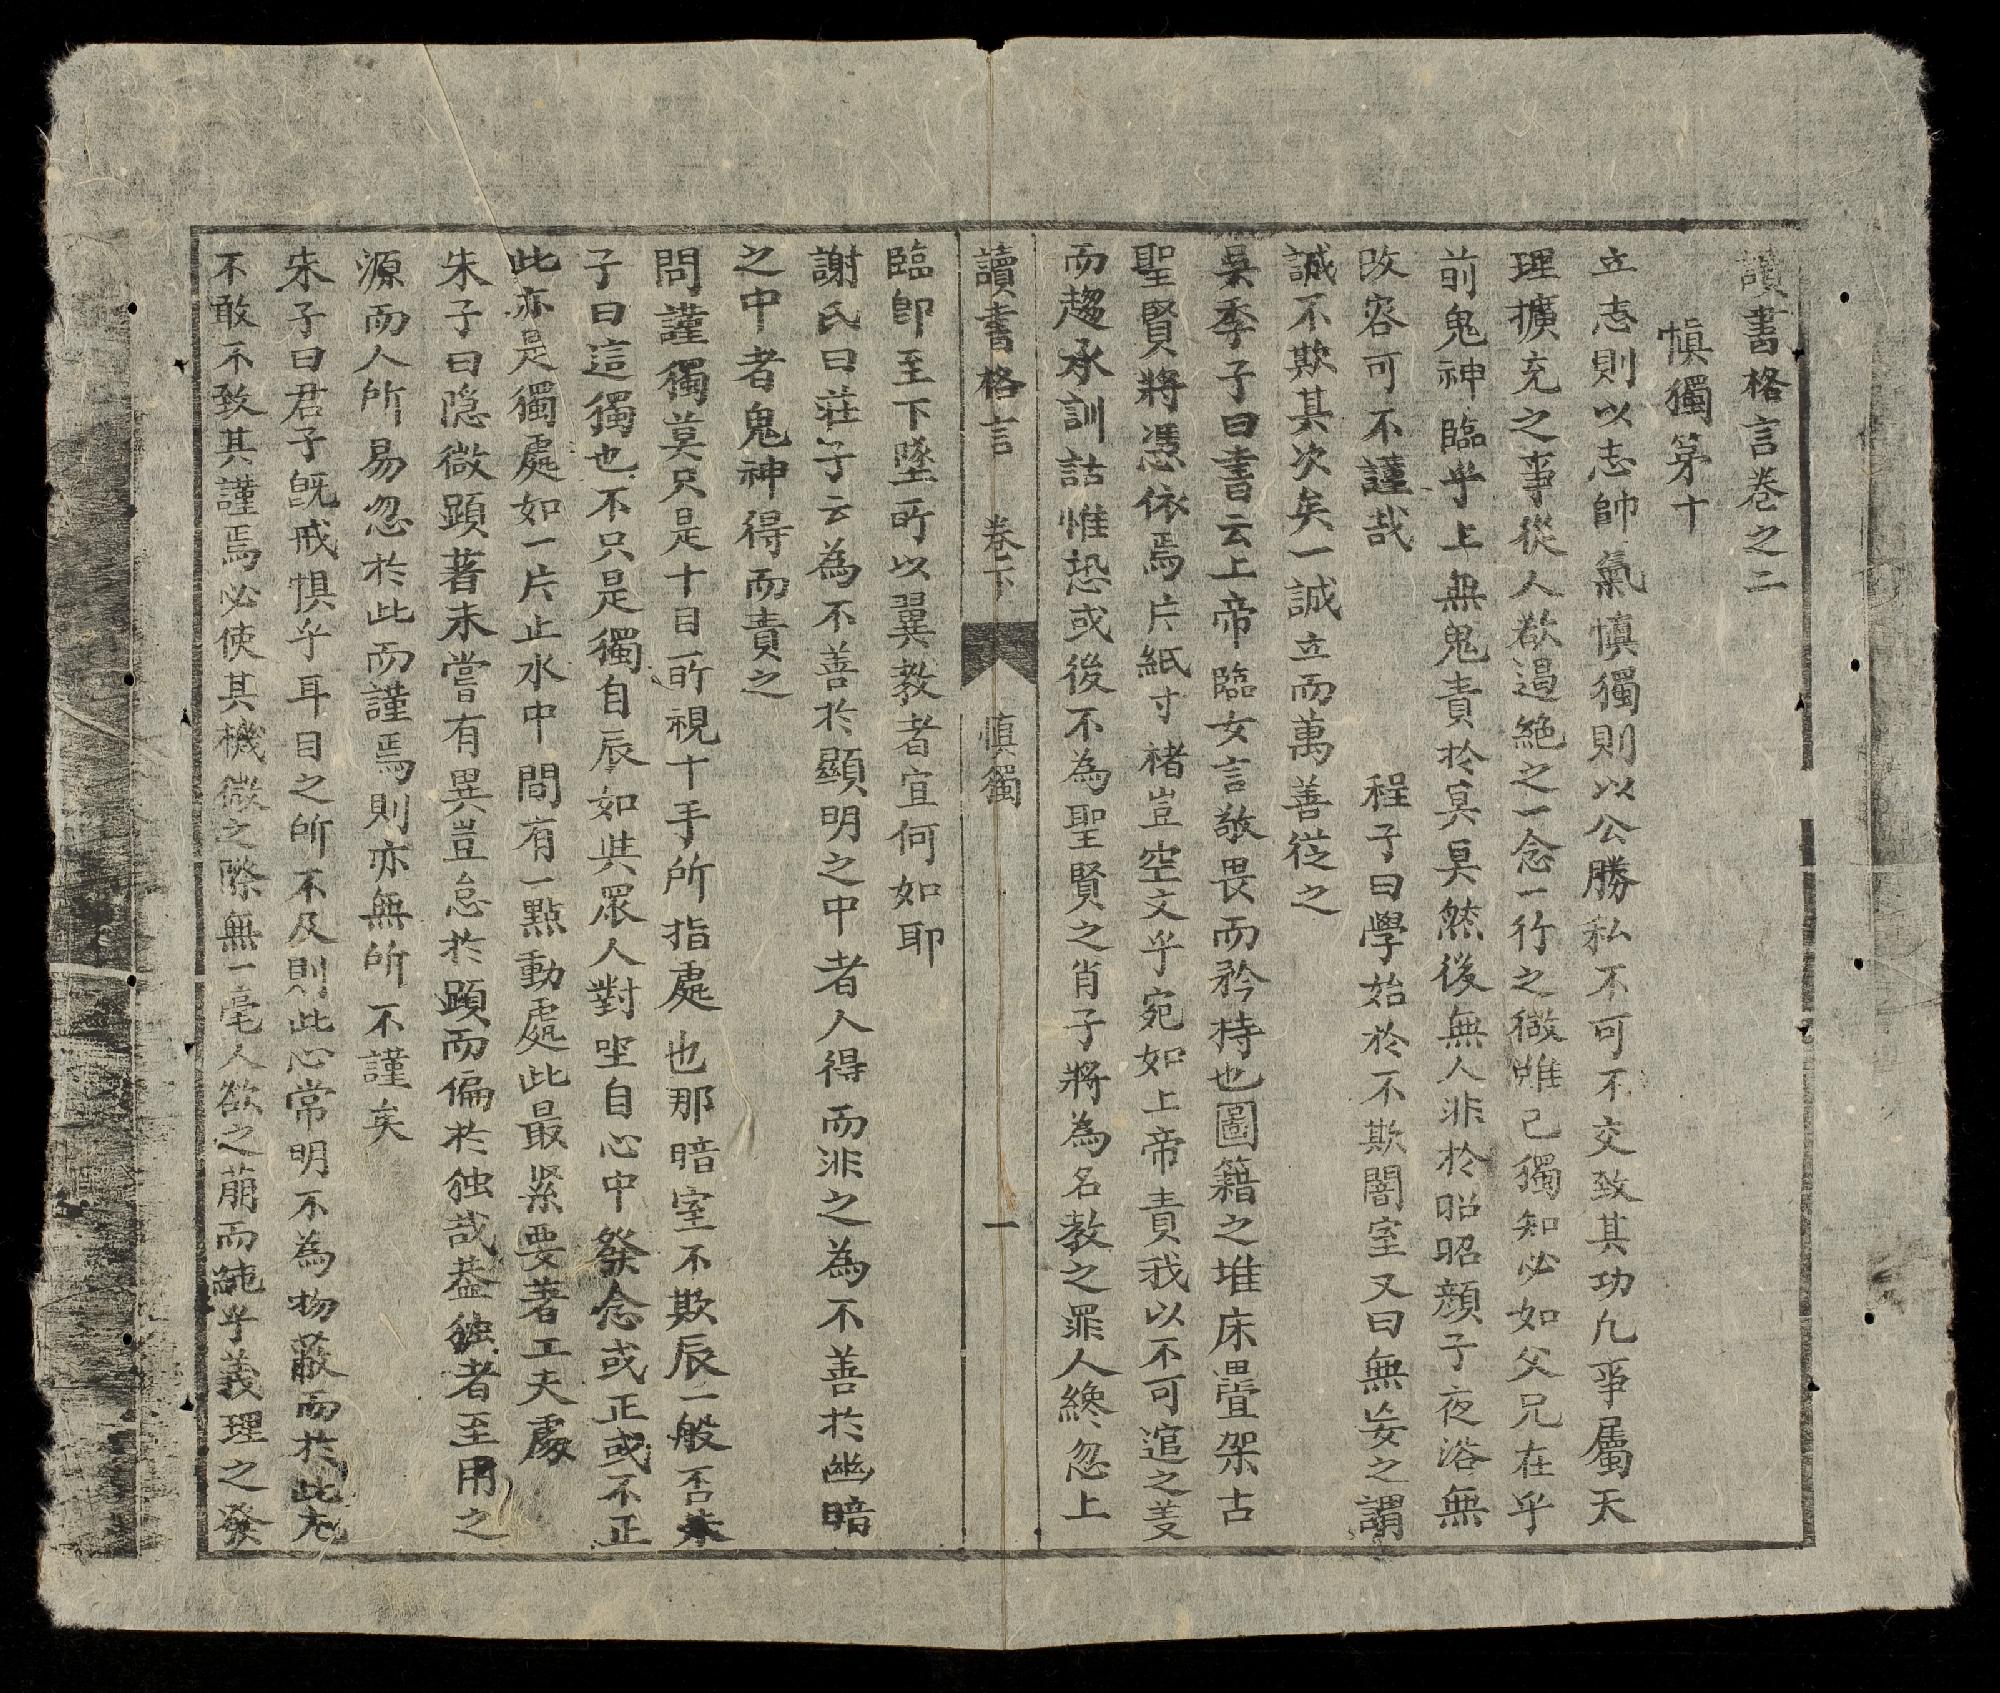 讀書格言卷之二
愼獨苐十
立志則以志帥氣慎獨則以公勝私不可不交致其功凢事屬天
理擴充之事從人欲遏絶之一念一行之微雖己獨知必如父兄在乎
前鬼神臨乎上無鬼責於冥冥然後無人非於昭昭顔子夜浴無
改容可不謹哉　程子曰學始於不欺闇室又曰無妄之謂
誠不欺其次矣一誠立而萬善從之
吴季子曰書云上帝臨女言敬畏而矜持也圖籍之堆床疊架古
聖賢將憑依焉片紙寸楮豈空文乎宛如上帝責我以不可逭之羑
而趨承訓詁惟恐或後不為聖賢之肖子將為名教之罪人纔忽上
讀書格言　卷下　慎獨　一
臨卽至下墜所以翼教者宜何如耶
謝氏曰莊子云為不善於顯明之中者人得而非之為不善於幽暗
之中者鬼神得而責之
問謹獨莫只是十目所視十手所指處也那暗室不欺辰一般否朱
子曰這獨也不只是獨自辰如與眾人對坐自心中發念或正或不正
此亦是獨處如一片止水中間有一點動處此最緊要著工夫處
朱子曰隐微顕著未嘗有異豈怠於顕而偏於独哉盖独者至用之
源而人所易忽於此而謹焉則亦無所不謹矣
朱子曰君子既戒惧乎耳目之所不及則此心常明不為物蔽而於此尤
不敢不致其謹焉必使其機微之際無一毫人欲之萠而純乎義理之發